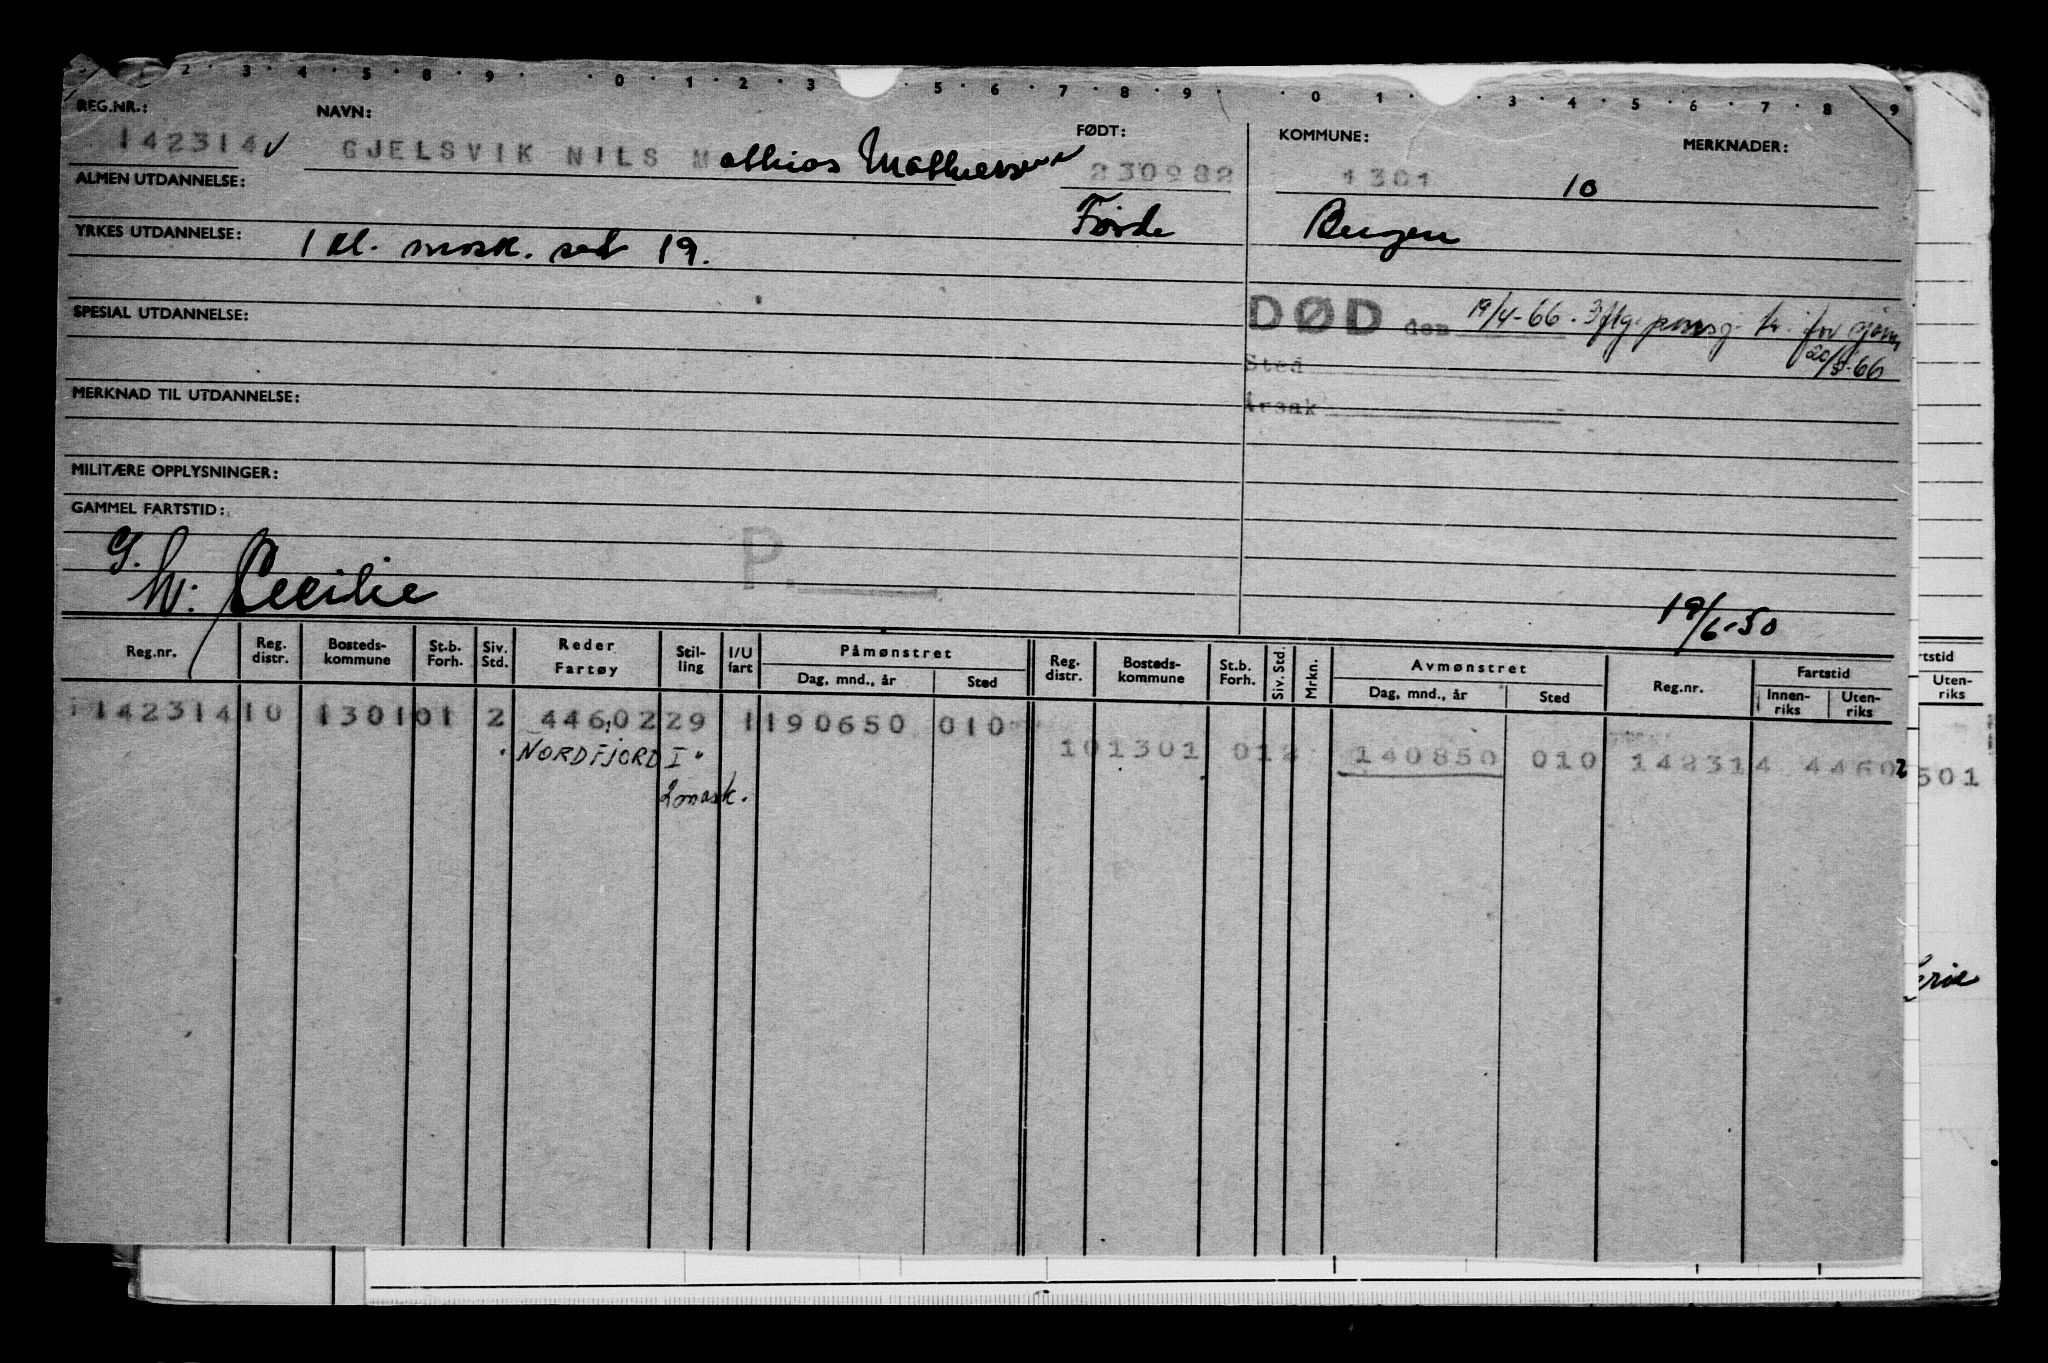 2 · 3 · 4 · 5 · 8 · 9 · 0 · 1 · 2 · 3 5 · 6 · 7 · 8 · 9 · 0 · 1 · 3 · 4 · 5 · 6 · 7 · 8 · 9
REG.NR.: NAVN: FØDT: KOMMUNE: MERKNADER:
142314 GJELSVIK NILS Mathias 230982 1301 10
ALMEN UTDANNELSE:
Førde Bergen
YRKES UTDANNELSE: 1 kl. mask. sert 19.
SPESIAL UTDANNELSE:
DØD den 19/4-66.
20/5-66
Sted
Årsak
MERKNAD TIL UTDANNELSE:
MILITÆRE OPPLYSNINGER:
GAMMEL FARTSTID:
G.
P.
W: Cecilie
19/6-50
Reg.nr. Reg. distr. Bosteds-kommune St.b. Forh. Siv. Std. Reder Fartøy Stil-ling I/U fart Påmønstret Dag, mnd., år Sted Reg. distr. Bosteds-kommune St.b. Forh. Siv. Std. Mrkn. Avmønstret Dag, mnd., år Sted Reg.nr. Fartstid Innen-riks Uten-riks
rtstid
Uten-riks
142314 10 1301 01 2 44602 29 1 190650 010
"NORDFJORD I"
10 1301 01 2 140850 010 142314 44602
501
2 mask.